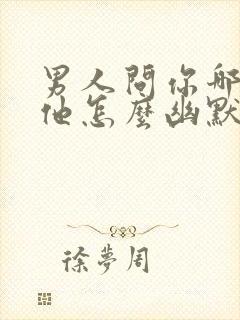 男人問你哪
他怎麼幽默
徐夢周